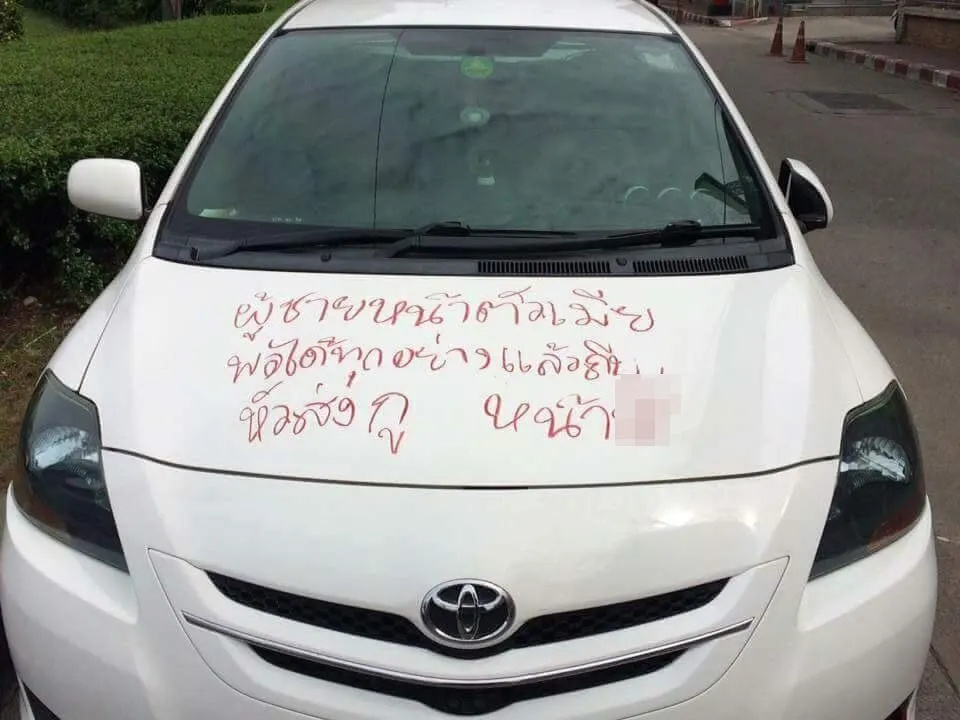 ผู้ชายหน้าตัวเมีย
พอได้ทุกอย่างแล้ว
หัวส่งกู หน้า